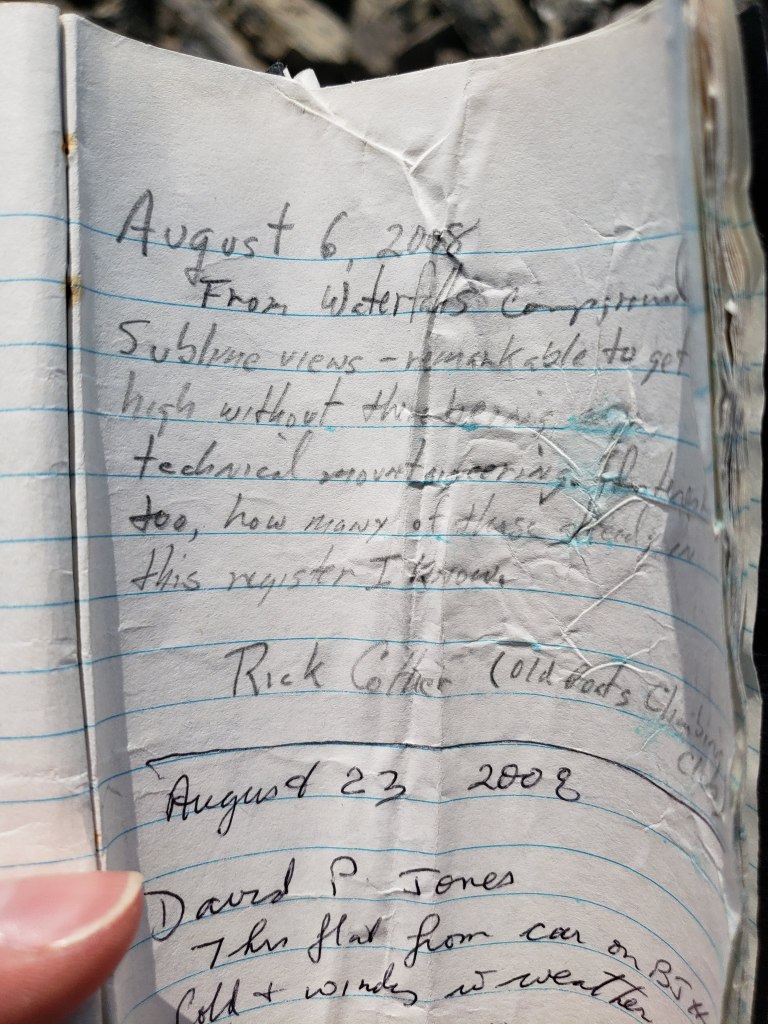 August 6, 2008
From Waterfalls Campground
Sublime views - remarkable to get
high without
technical mountaineering.
too, how many of these already in
this register I know.
Rick (Old Goats Climbing
Club)
August 23 2008
David P. Jones
7 hrs flat from car on
Cold + windy w weather